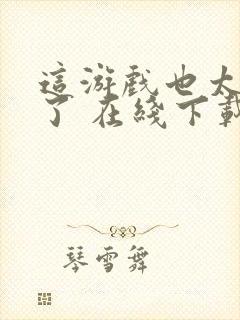 這游戲也太
了 在綫下載
琴雪舞